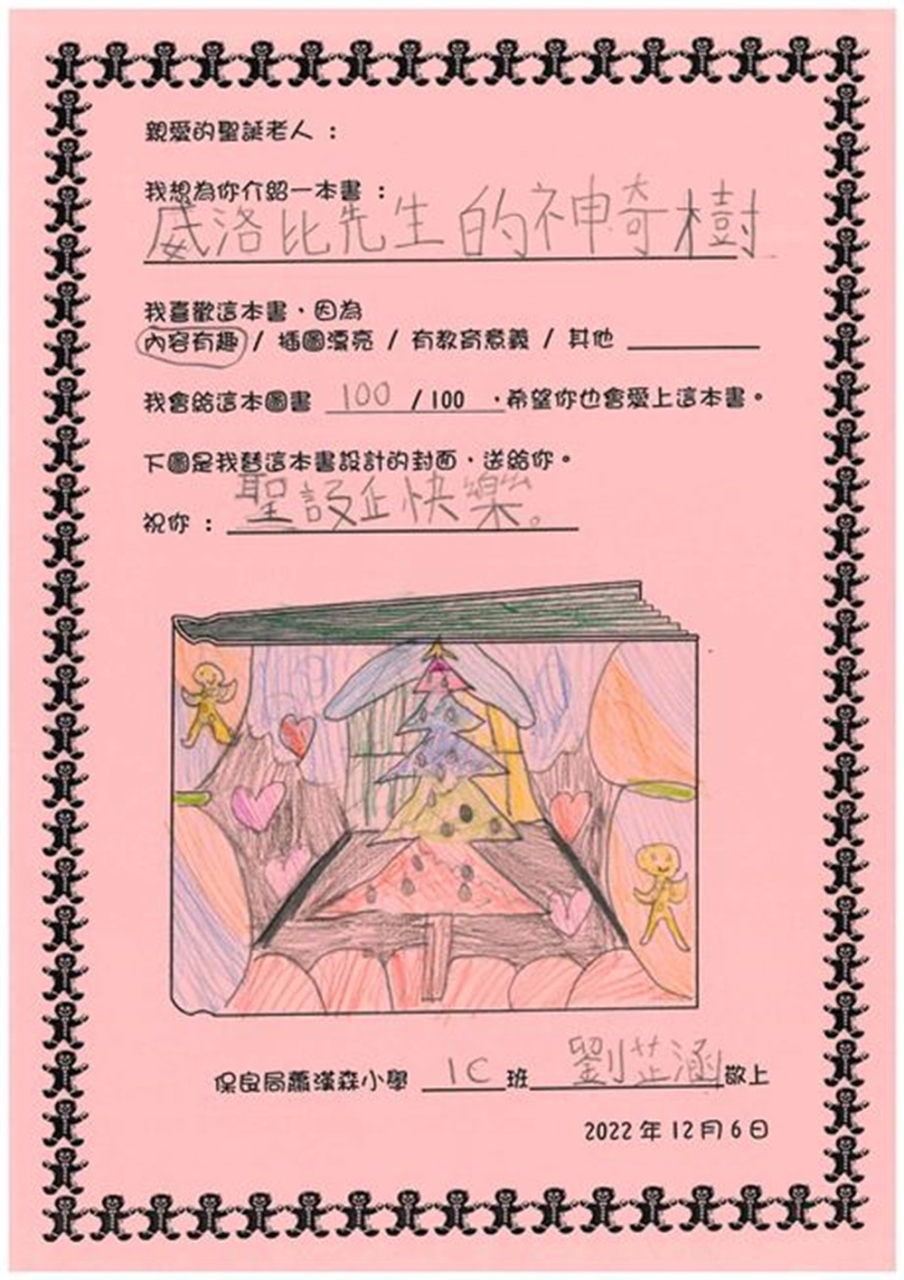 親愛的聖誕老人：
我想為你介紹一本書：
威洛比先生的神奇樹
我喜歡這本書，因為
內容有趣 / 插圖漂亮 / 有教育意義 / 其他
我會給這本圖書 100 / 100 ，希望你也會愛上這本書。
下圖是我替這本書設計的封面，送給你。
祝你：聖設企快樂。
保良局蕭漢森小學 1C 班 劉芷涵 敬上
2022 年 12 月 6 日